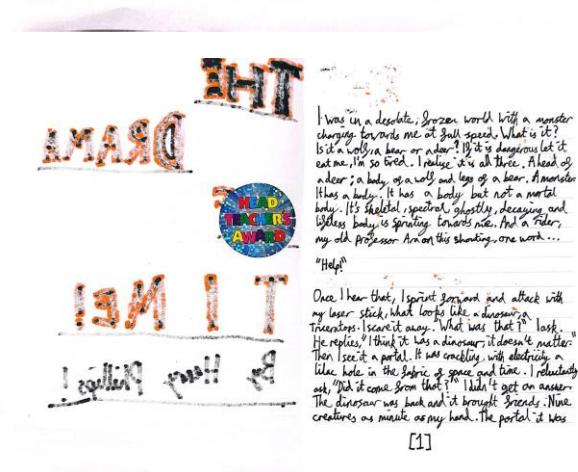 THE
DRAMA
HEAD
TEACHER'S
AWARD
T I ME!
By Henry Phillips!
I was in a desolate, frozen world with a monster
charging towards me at full speed. What is it?
Is it a wolf, a bear or a deer? If it is dangerous let it
eat me, I'm so tired. I realise it is all three. A head of
a deer; a body of a wolf and legs of a bear. A monster.
It has a body. It has a body but not a mortal
body. It's skeletal, spectral, ghostly, decaying and
lifeless body is sprinting towards me. And a rider,
my old Professor on this shouting, one word...
"Help!"
Once I hear that, I sprint forward and attack with
my laser stick, what looks like a dinosaur, a
Tricerators. I scare it away. "What was that?" I ask.
He replies, "I think it was a dinosaur, it doesn't matter."
Then I see it a portal. It was crackling with electricity a
lilac hole in the fabric of space and time. I reluctantly
ask, "Did it come from that?" I didn't get an answer.
The dinosaur was back and it brought friends. Nine
creatures as minute as my hand. The portal it was
[1]